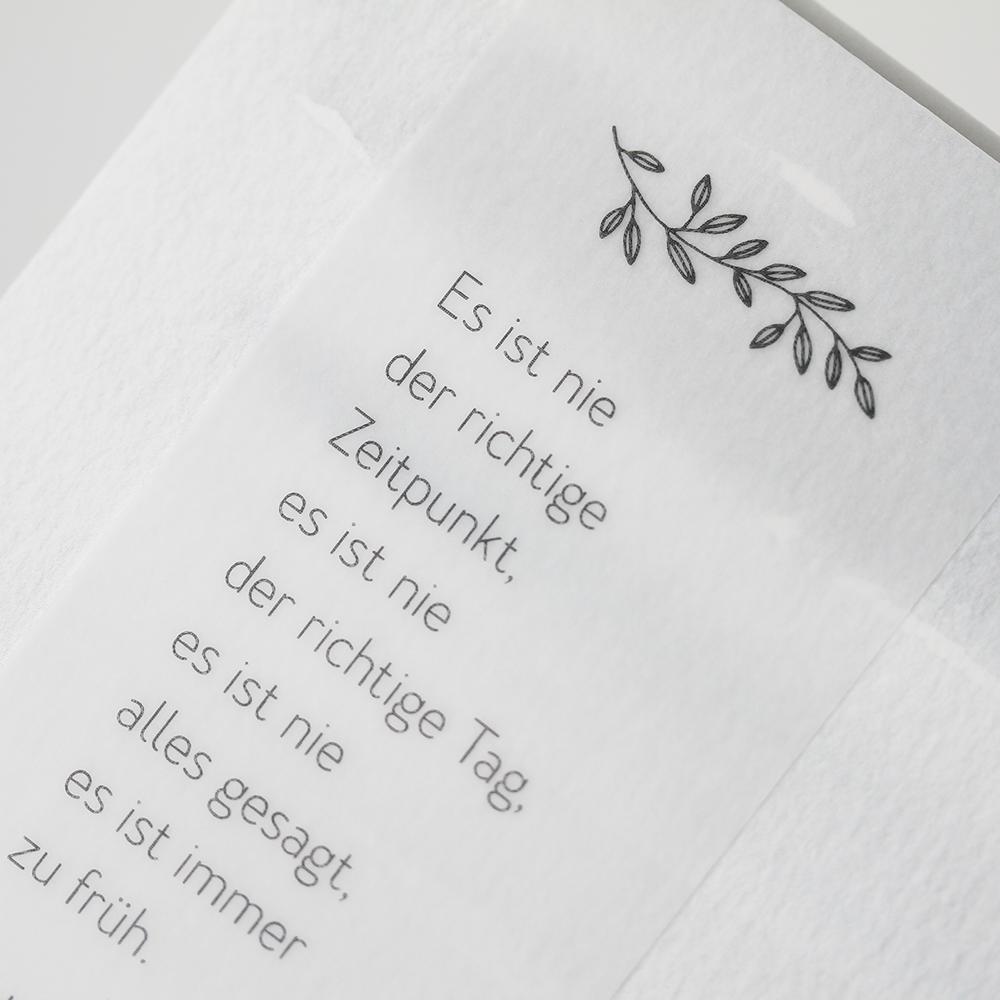 Es ist nie
der richtige
Zeitpunkt,
es ist nie
der richtige Tag,
es ist nie
alles gesagt,
es ist immer
zu früh.